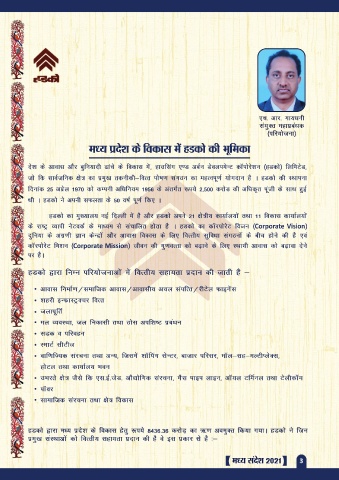 हडको
एच. आर. गावपनी
संयुक्त महाप्रबंधक
(परियोजना)
मध्य प्रदेश के विकास में हडको की भूमिका
देश के आवास और बुनियादी ढांचे के विकास में, हाउसिंग एण्ड अर्बन डेवलपमेन्ट कॉर्पोरेशन (हडको) लिमिटेड,
जो कि सार्वजनिक क्षेत्र का प्रमुख तकनीकी–वित्त पोषण संगठन का महत्वपूर्ण योगदान है । हडको की स्थापना
दिनांक 25 अप्रेल 1970 को कम्पनी अधिनियम 1956 के अंतर्गत रूपये 2,500 करोड की अधिकृत पूंजी के साथ हुई
थी । हडको ने अपनी सफलता के 50 वर्ष पूर्ण किए ।
हडको का मुख्यालय नई दिल्ली में है और हडको अपने 21 क्षेत्रीय कार्यालयों तथा 11 विकास कार्यालयों
के राष्ट्र व्यापी नेटवर्क के माध्यम से संचालित होता है । हडको का कॉरपोरेट विजन (Corporate Vision)
दुनिया के अग्रणी ज्ञान केन्द्रों और आवास विकास के लिए वित्तीय सुविधा संगठनों के बीच होने की है एवं
कॉरपोरेट मिशन (Corporate Mission) जीवन की गुणवत्ता को बढ़ाने के लिए स्थायी आवास को बढ़ावा देने
पर है।
हडको द्वारा निम्न परियोजनाओं में वित्तीय सहायता प्रदान की जाती है –
• आवास निर्माण/सामाजिक आवास/आवासीय अचल संपत्ति/रीटेल फाइनेंस
• शहरी इन्फ्रास्ट्रक्चर वित्त
• जलापूर्ति
• मल व्यवस्था, जल निकासी तथा ठोस अपशिष्ट प्रबंधन
• सड़क व परिवहन
• स्मार्ट सीटीज
• वाणिज्यिक संरचना तथा अन्य, जिसमें शॉपिंग सेन्टर, बाजार परिसर, मॉल–सह–मल्टीप्लेक्स,
होटल तथा कार्यालय भवन
• उभरते क्षेत्र जैसे कि एस.ई.जेड. औद्योगिक संरचना, गैस पाइप लाइन, ऑयल टर्मिनल तथा टेलीकॉम
• पॉवर
• सामाजिक संरचना तथा क्षेत्र विकास
हडको द्वारा मध्य प्रदेश के विकास हेतु रूपये 8436.36 करोड़ का ऋण अवमुक्त किया गया। हडको ने जिन
प्रमुख संस्थाओं को वित्तीय सहायता प्रदान की है वे इस प्रकार से है :–
[ मध्य संदेश 2021 ] 3